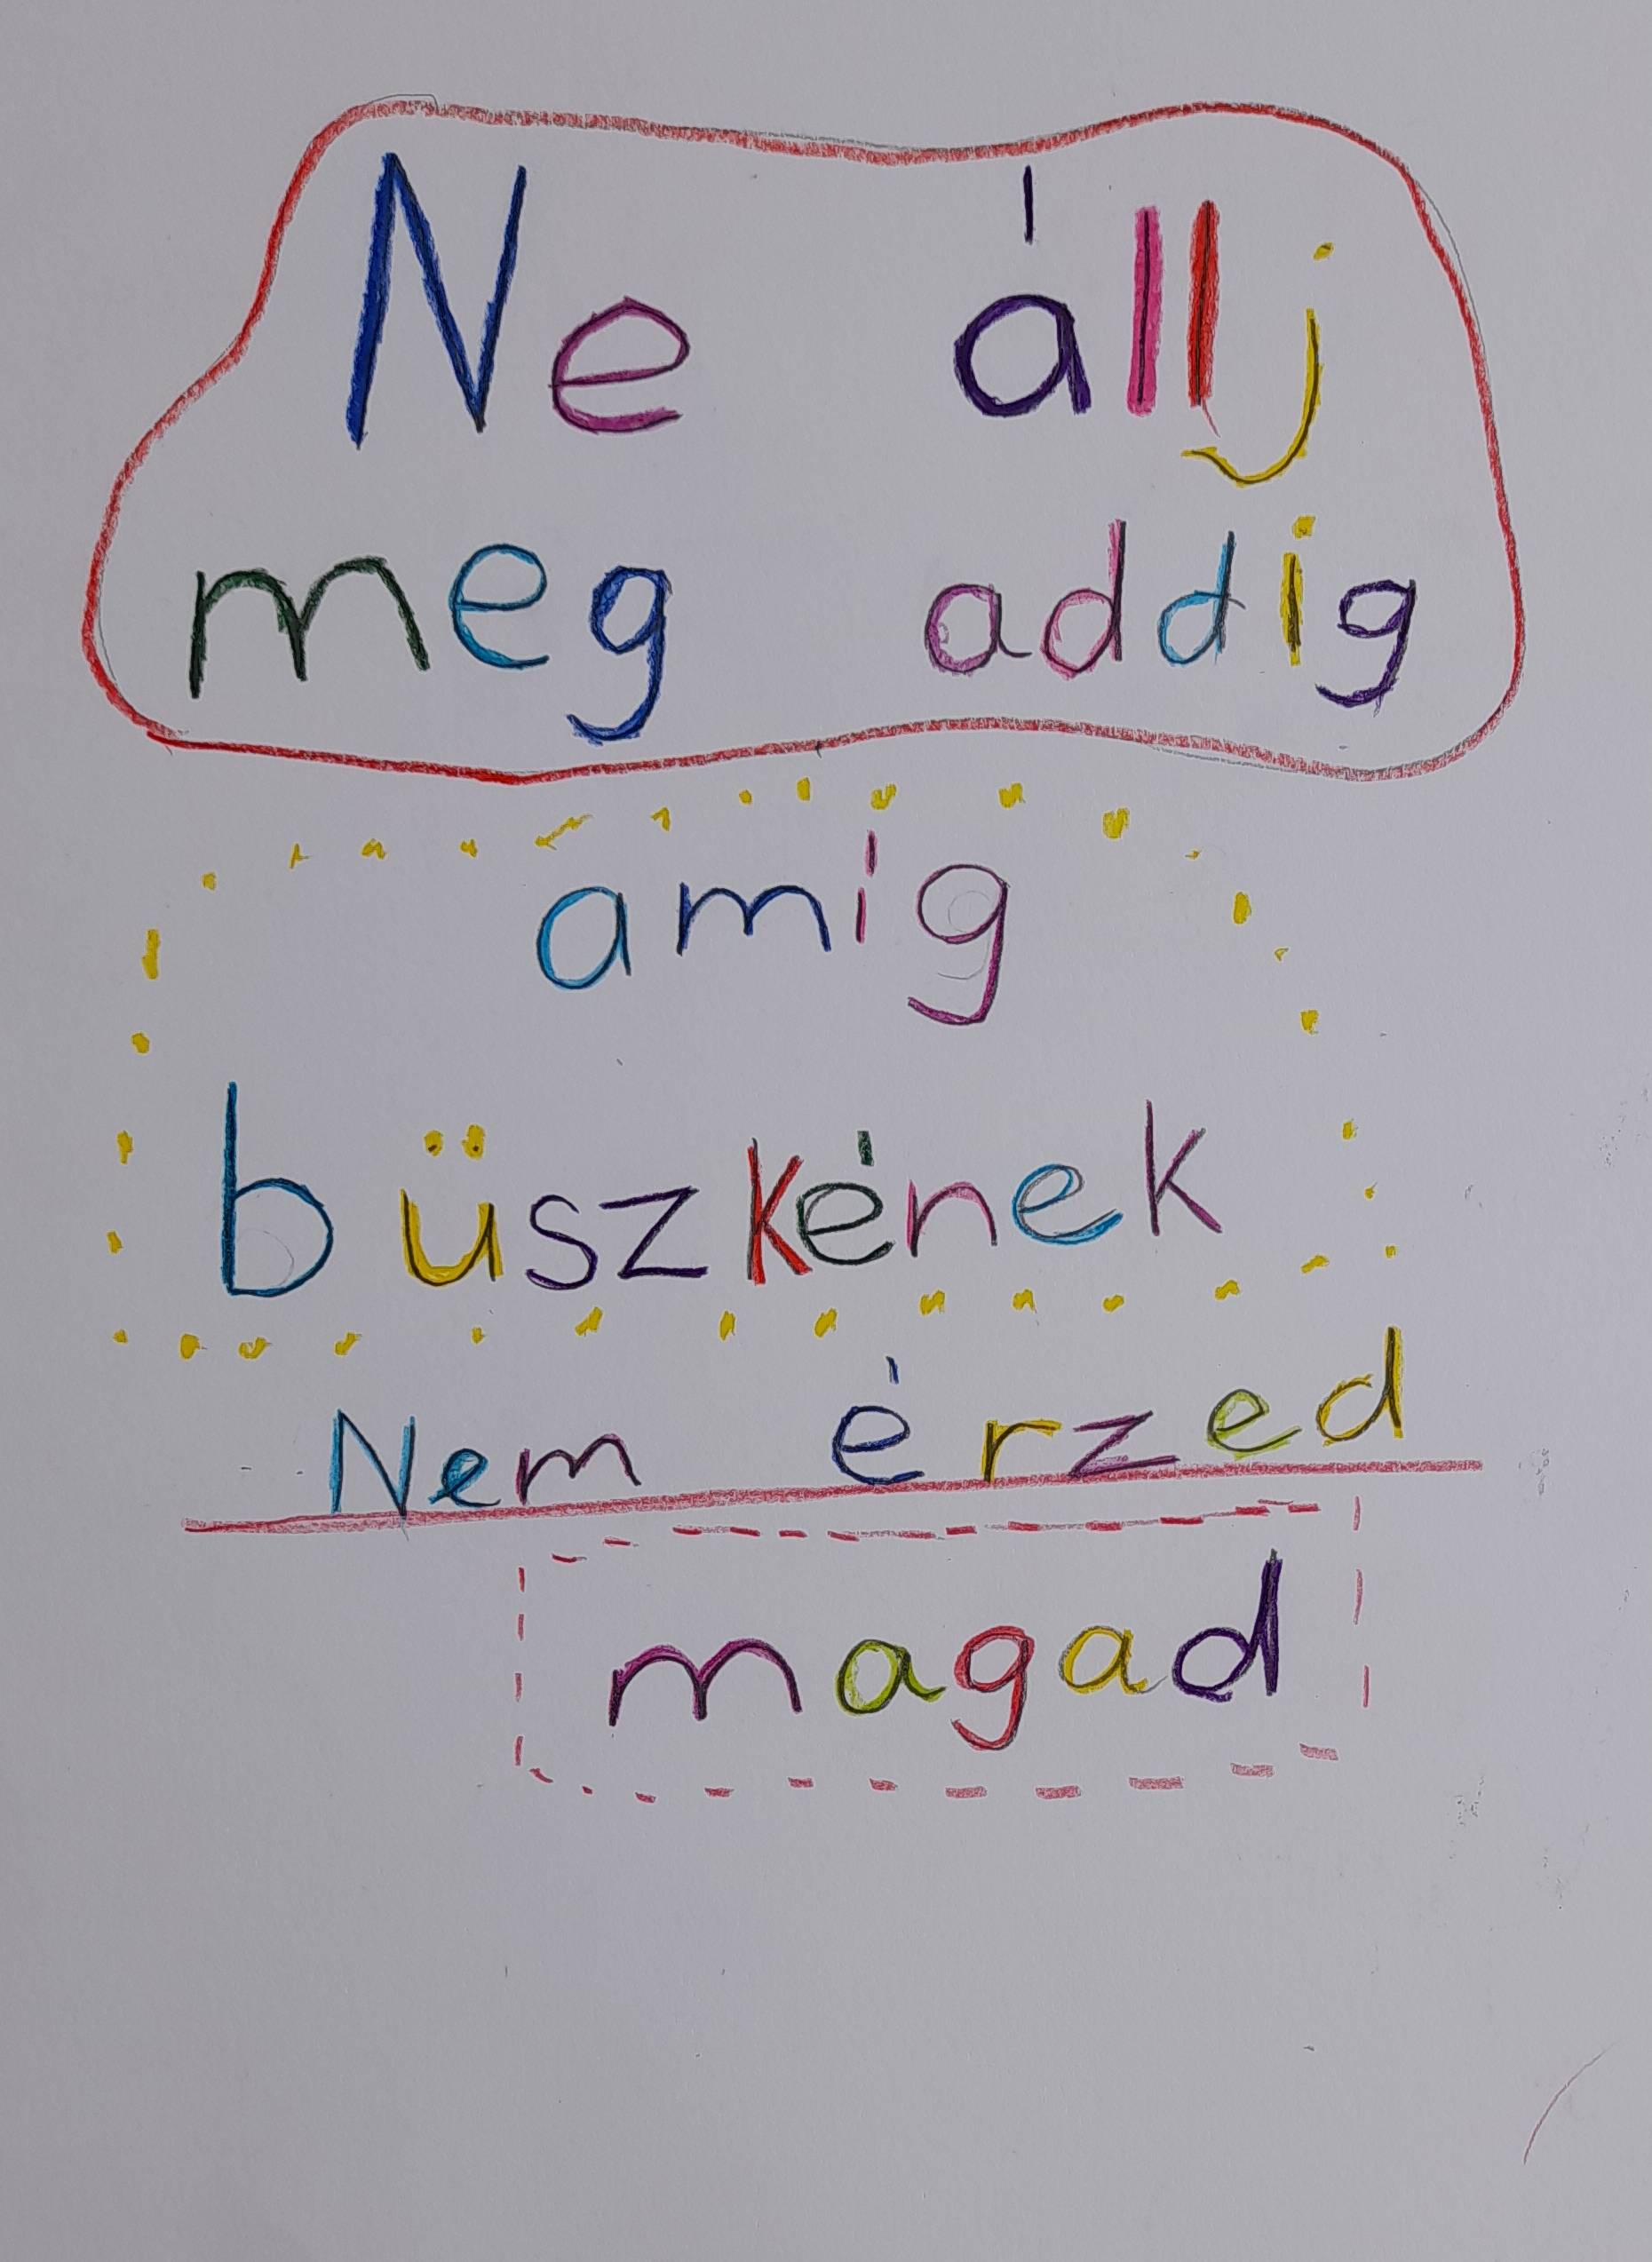 Ne állj
meg addig
amíg
büszkének
Nem érzed
magad